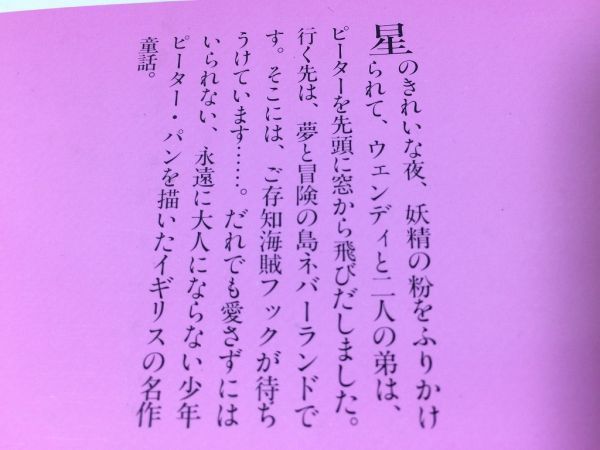 星のきれいな夜、妖精の粉をふりかけ
られて、ウェンディと二人の弟は、
ピーターを先頭に窓から飛びだしました。
行く先は、夢と冒険の島ネバーランドで
す。そこには、ご存知海賊フックが待ち
うけています……。だれでも愛さずには
いられない、永遠に大人にならない少年
ピーター・パンを描いたイギリスの名作
童話。